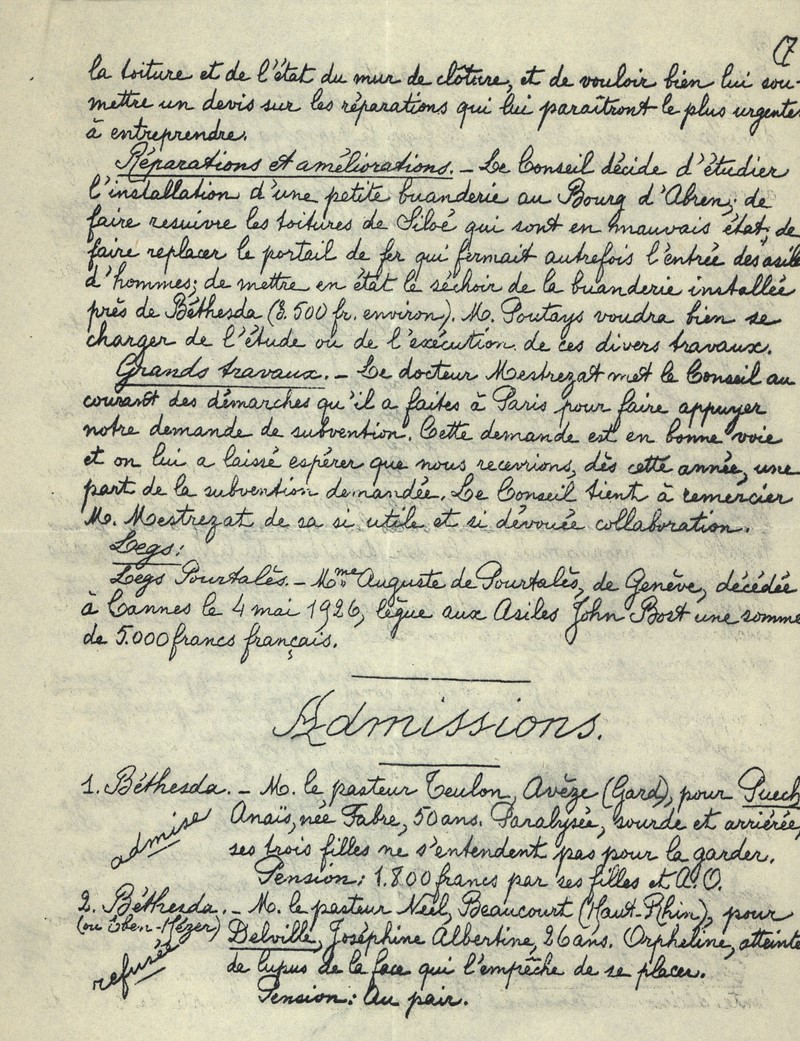 (7
la toiture et de l'état du mur de clôture, et de vouloir bien lui sou-
mettre un devis sur les réparations qui lui paraîtront le plus urgentes
à entreprendre.
Réparations et améliorations. - Le Conseil décide d'étudier
l'installation d'une petite buanderie au Bourg d'Abren; de
faire resuivre les toitures de Siloé qui sont en mauvais état; de
faire replacer le portail de fer qui fermait autrefois l'entrée des asile
d'hommes; de mettre en état le séchoir de la buanderie installée
près de Béthesda (3.500 fr. environ). M. Poutays voudra bien se
charger de l'étude ou de l'exécution de ces divers travaux.
Grands travaux. - Le docteur Mestrezat met le Conseil au
courant des démarches qu'il a faites à Paris pour faire appuyer
notre demande de subvention. Cette demande est en bonne voie
et on lui a laissé espérer que nous recevrions, dès cette année, une
part de la subvention demandée. Le Conseil tient à remercier
M. Mestrezat de sa si utile et si dévouée collaboration.
Legs:
Legs Pourtalès. - Mme Auguste de Pourtalès, de Genève, décédée
à Cannes le 4 mai 1926, lègue aux Asiles John Bost une somme
de 5.000 francs français.
Admissions.
1. Béthesda. - M. le pasteur Teulon, Avèze (Gard), pour Puech
Anaïs, née Fabre, 50 ans. Paralysée, sourde et arriérée,
admise
ses trois filles ne s'entendent pas pour la garder.
Pension: 1.800 francs par ses filles et A.O.
2. Béthesda. - M. le pasteur Néel, Beaucourt (Haut-Rhin), pour
(ou Eben-Hézer) Delville, Joséphine Albertine, 26 ans. Orpheline, atteinte
refusée
de lupus de la face qui l'empêche de se placer.
Pension: Au pair.